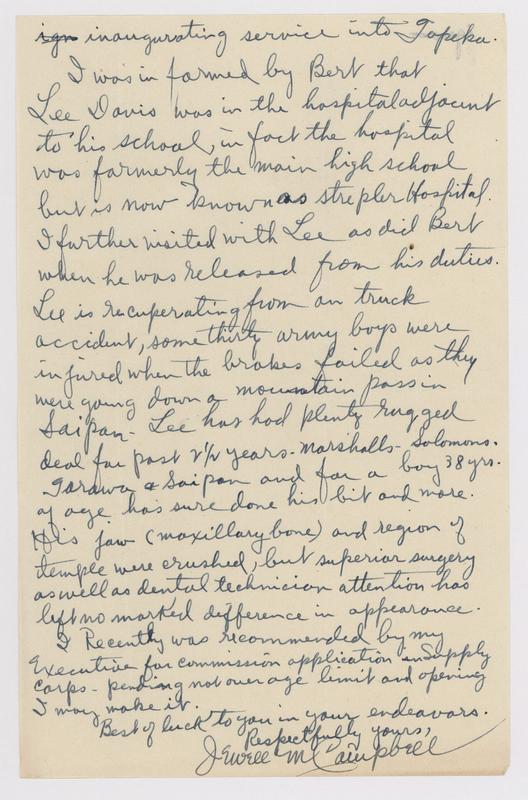 ign inaugurating service into Topeka.
I was in formed by Bert that
Lee Davis was in the hospital adjacent
to his school, in fact the hospital
was formerly the main high school
but is now known as strepler Hospital.
I further visited with Lee as did Bert
when he was released from his duties.
Lee is recuperating from an truck
accident, some thirty army boys were
injured when the brakes failed as they
were going down a mountain pass in
Saipan. Lee has had plenty rugged
deal for past 2 1/2 years - Marshalls - Solomons.
Tarawa & Saipan and for a boy 38 yrs.
of age has sure done his bit and more.
His jaw (maxillary bone) and region of
temple were crushed, but superior surgery
as well as dental technician attention has
left no marked difference in appearance.
I Recently was recommended by my
Executive for commission application in Supply
Corps - pending not over age limit and opening
I may make it.
Best of luck to you in your endeavors.
Respectfully yours,
Jewell McCampbell